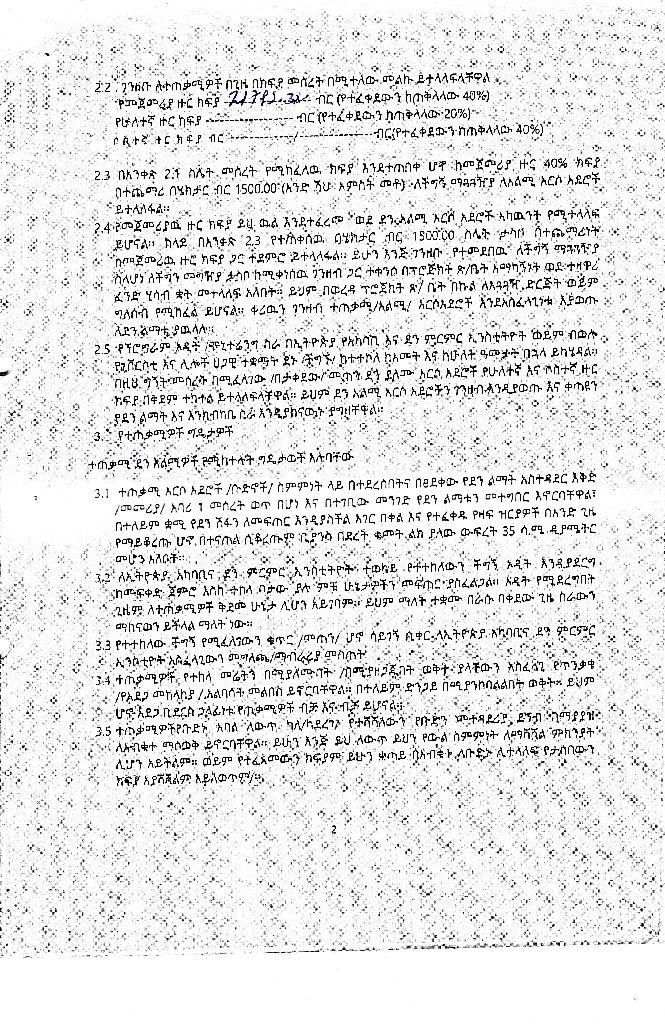 2.2 ገንዘቡ ለተጠቃሚዎች በጊዜ በክፍያ መሰረት በሚተለው መልኩ ይተላለፍላቸዋል
የመጀመሪያ ዙር ክፍያ ብር (የተፈቀደውን ከጠቅላላው 40%)
የሁለተኛ ዙር ክፍያ ---------- ብር (የተፈቀደውን ከጠቅላላው 20%)
ሶስተኛ ዙር ክፍያ ብር ---------- / ---------- ብር(የተፈቀደውን ከጠቅላላው 40%)
2.3 በአንቀጽ 2.1 ስሌት መሰረት የሚከፈለዉ ክፍያ እንደተጠበቀ ሆኖ ከመጀመሪያ ዙር 40% ክፍያ
በተጨማሪ በሄክታር ብር 1500.00 (አንድ ሽህ አምስት መቶ) ለችግኝ ማጓጓዣያ ለአልሚ አርሶ አደሮች
ይተላለፋል።
2.4 የመጀመሪያዉ ዙር ክፍያ ይህ ዉል እንደተፈረመ ወደ ደን አልሚ አርሶ አደሮች አካዉንት የሚተላለፍ
ይሆናል። ከላይ በአንቀጽ 2.3 የተጠቀሰዉ በሄክታር ብር 1500.00 ስሌት ታስቦ በተጨማሪነት
ከመጀመሪዉ ዙር ክፍያ ጋር ተደምሮ ይተላለፋል። ይሁን እንጅ ገንዘቡ የተመደበዉ ለችግኝ ማጓጓዣያ
ስለሆነ ለችግኝ መግዣያ ታስቦ ከሚቀነሰዉ ገንዘብ ጋር ተቀንሶ በፕሮጀክት ጽ/ቤት አማካኝነት ወደ ተዘዋሪ
ፈንድ ሂሳብ ቋት መተላለፍ አለበት። ይህም በወረዳ ፕሮጀክት ጽ/ ቤት በኩል ለአጓጓዥ ድርጅት ወይም
ግለሰብ የሚከፈል ይሆናል። ቀሪዉን ገንዘብ ተጠቃሚ/አልሚ/ አርሶአደሮች እንደአስፈላጊነቱ እያወጡ
ለደን ልማቱ ያዉላሉ።
2.5 የፕሮግራም ኦዲት /ሞኒተሪንግ ስራ በኢትዮጵያ የአካባቢ እና ደን ምርምር ኢንስቲትዮት ወይም ብወሎ
የኒቨርስቲ እና ሌሎች ህጋዊ ተቋማት ደኑ /ችግኙ/ ከተተከለ ከአመት እና ከሁለት ዓመታት በኋላ ይካሄዳል።
በዚህ ግኝት መሰረት በሚፈለገው /በታቀደው/ መጠን ደን ያለሙ አርሶ አደሮች የሁለተኛ እና ሶስተኛ ዙር
ክፍያ በቀደም ተከተል ይተላለፍላቸዋል። ይህም ደን አልሚ አርሶ አደሮችን ገንዘብ እንዲያወጡ እና ቀጣዩን
ያደን ልማት እና እንክብካቤ ስራ እንዲያከናዉኑ ያግዛቸዋል።
3. የተጠቃሚዎች ግዴታዎች
ተጠቃሚ ደን አልሚዎች የሚከተሉት ግዴታወች አሉባቸው
3.1 ተጠቃሚ አርሶ አደሮች /ቡድኖች/ ስምምነት ላይ በተደረሰበትና በፀደቀው የደን ልማት አስተዳደር እቅድ
/መመሪያ/ አባሪ 1 መሰረት ወጥ በሆነ እና በተገቢው መንገድ የደን ልማቱን መተግበር አኖርባቸዋል፣
በተለይም ቋሚ የደን ሽፋን ለመፍጠር እንዲያስችል አገር በቀል እና የተፈቀዱ የዛፍ ዝርያዎች በአንድ ጊዜ
የማይቆረጡ ሆኖ በተናጠል ሲቆረጡም ቢያንስ በደረት ቁመት ልክ ያለው ውፍረት 35 ሳ.ሚ. ዲያሜትር
መሆን አለበት።
3.2 ለኢትዮጵያ አካባቢና ደን ምርምር ኢንስቲትዮት ተወካይ የተተከለውን ችግኝ ኦዲት እንዲያደርግ
ከመፍቀድ ጀምሮ እስከ ተከላ ቦታው ያሉ ምቹ ሁኔታዎችን መፍጠር ያስፈልጋል። ኦዲት የሚደረግበት
ጊዜም ለተጠቃሚዎች ቅድመ ሁኔታ ሊሆን አይገባም። ይህም ማለት ተቋሙ በራሱ በቀደው ጊዜ ስራውን
ማከናወን ይችላል ማለት ነው።
3.3 የተተከለው ችግኝ የሚፈለገውን ቁጥር /መጠን/ ሆኖ ሳይገኝ ሲቀር ለኢትዮጵያ አካባቢና ደን ምርምር
ኢንስቲዮት አስፈላጊውን መግላጫ/ማብራሪያ መስጠት
3.4 ተጠቃሚዎች የተከላ መሬትን በሚያለሙበት /በሚያዘጋጁበት ወቅት ያላቸውን አስፈላጊ የጥንቃቄ
/የአደጋ መከላከያ / አልባሳት መልበስ ይኖርባቸዋል። በተለይም ድንጋይ በሚያንከባልልበት ወቅት። ይህም
ሆኖ አደጋ ቢደርስ ኃላፊነቱ የጠቃሚዎች ብቻ እና ብቻ ይሆናል።
3.5 ተጠቃሚዎች የቡድኑ አባል ለውጥ ካለ/ካደረገ የተሻሻለውን የቡድን መተዳደሪያ ደንብ በማያያዝ
ለአብቁተ ማሳወቅ ይኖርባቸዋል። ይሁን እንጅ ይህ ለውጥ ይህን የውል ስምምነት ለማሻሻል ምክንያት
ሊሆን አይችልም። ወይም የተፈጸመውን ክፍያም ይሁን ቀጣይ በአብቁቱ ለቡድኑ ሊተላለፍ የታሰበውን
ክፍያ አያሻሽልም አይለወጥም/።
2